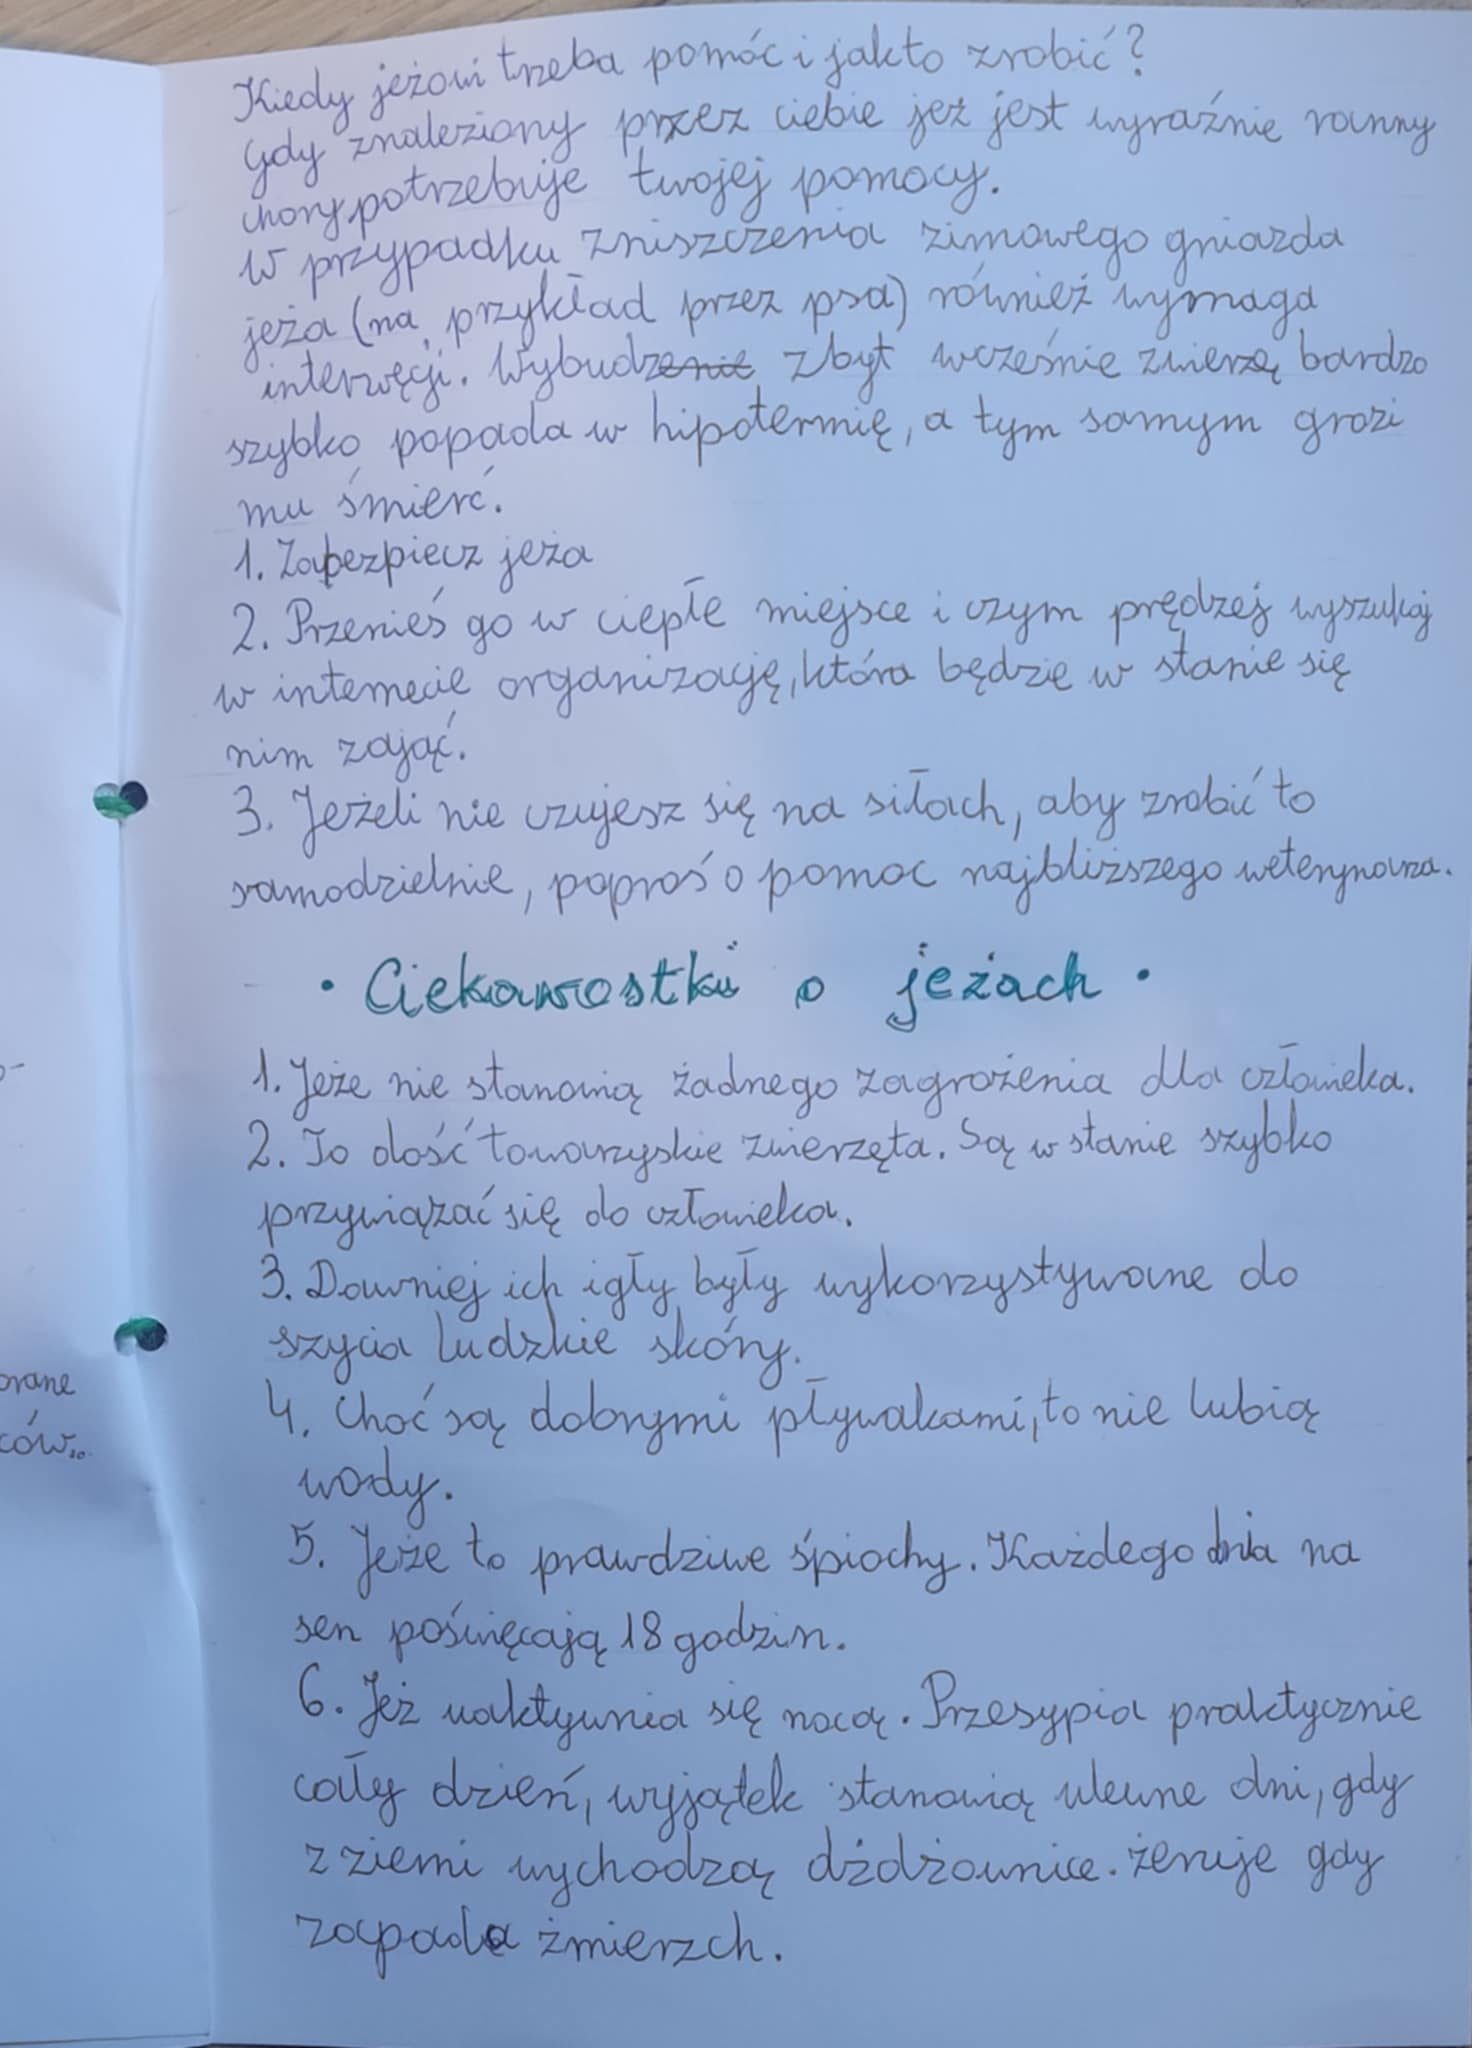 Kiedy jeżowi trzeba pomóc i jak to zrobić?
Gdy znaleziony przez ciebie jeż jest wyraźnie ranny
chory potrzebuje twojej pomocy.
W przypadku zniszczenia zimowego gniazda
jeża (na przykład przez psa) również wymaga
interwęcji. Wybudzenie zbyt wcześnie zwierzę bardzo
szybko popada w hipotermię, a tym samym grozi
mu śmierć.
1. Zabezpiecz jeża
2. Przenieś go w ciepłe miejsce i czym prędzej wyszukaj
w internecie organizację, która będzie w stanie się
nim zająć.
3. Jeżeli nie czujesz się na siłach, aby zrobić to
samodzielnie, poproś o pomoc najbliższego weterynarza.
• Ciekawostki o jeżach •
1. Jeże nie stanowią żadnego zagrożenia dla człowieka.
2. To dość towarzyskie zwierzęta. Są w stanie szybko
przywiązać się do człowieka.
3. Dawniej ich igły były wykorzystywane do
szycia ludzkie skóry.
4. Choć są dobrymi pływakami, to nie lubią
wody.
5. Jeże to prawdziwe śpiochy. Każdego dnia na
sen poświęcają 18 godzin.
6. Jeż uaktywnia się nocą. Przesypia praktycznie
cały dzień, wyjątek stanowią ulewne dni, gdy
z ziemi wychodzą dżdżownice. żeruje gdy
zapada żmierzch.